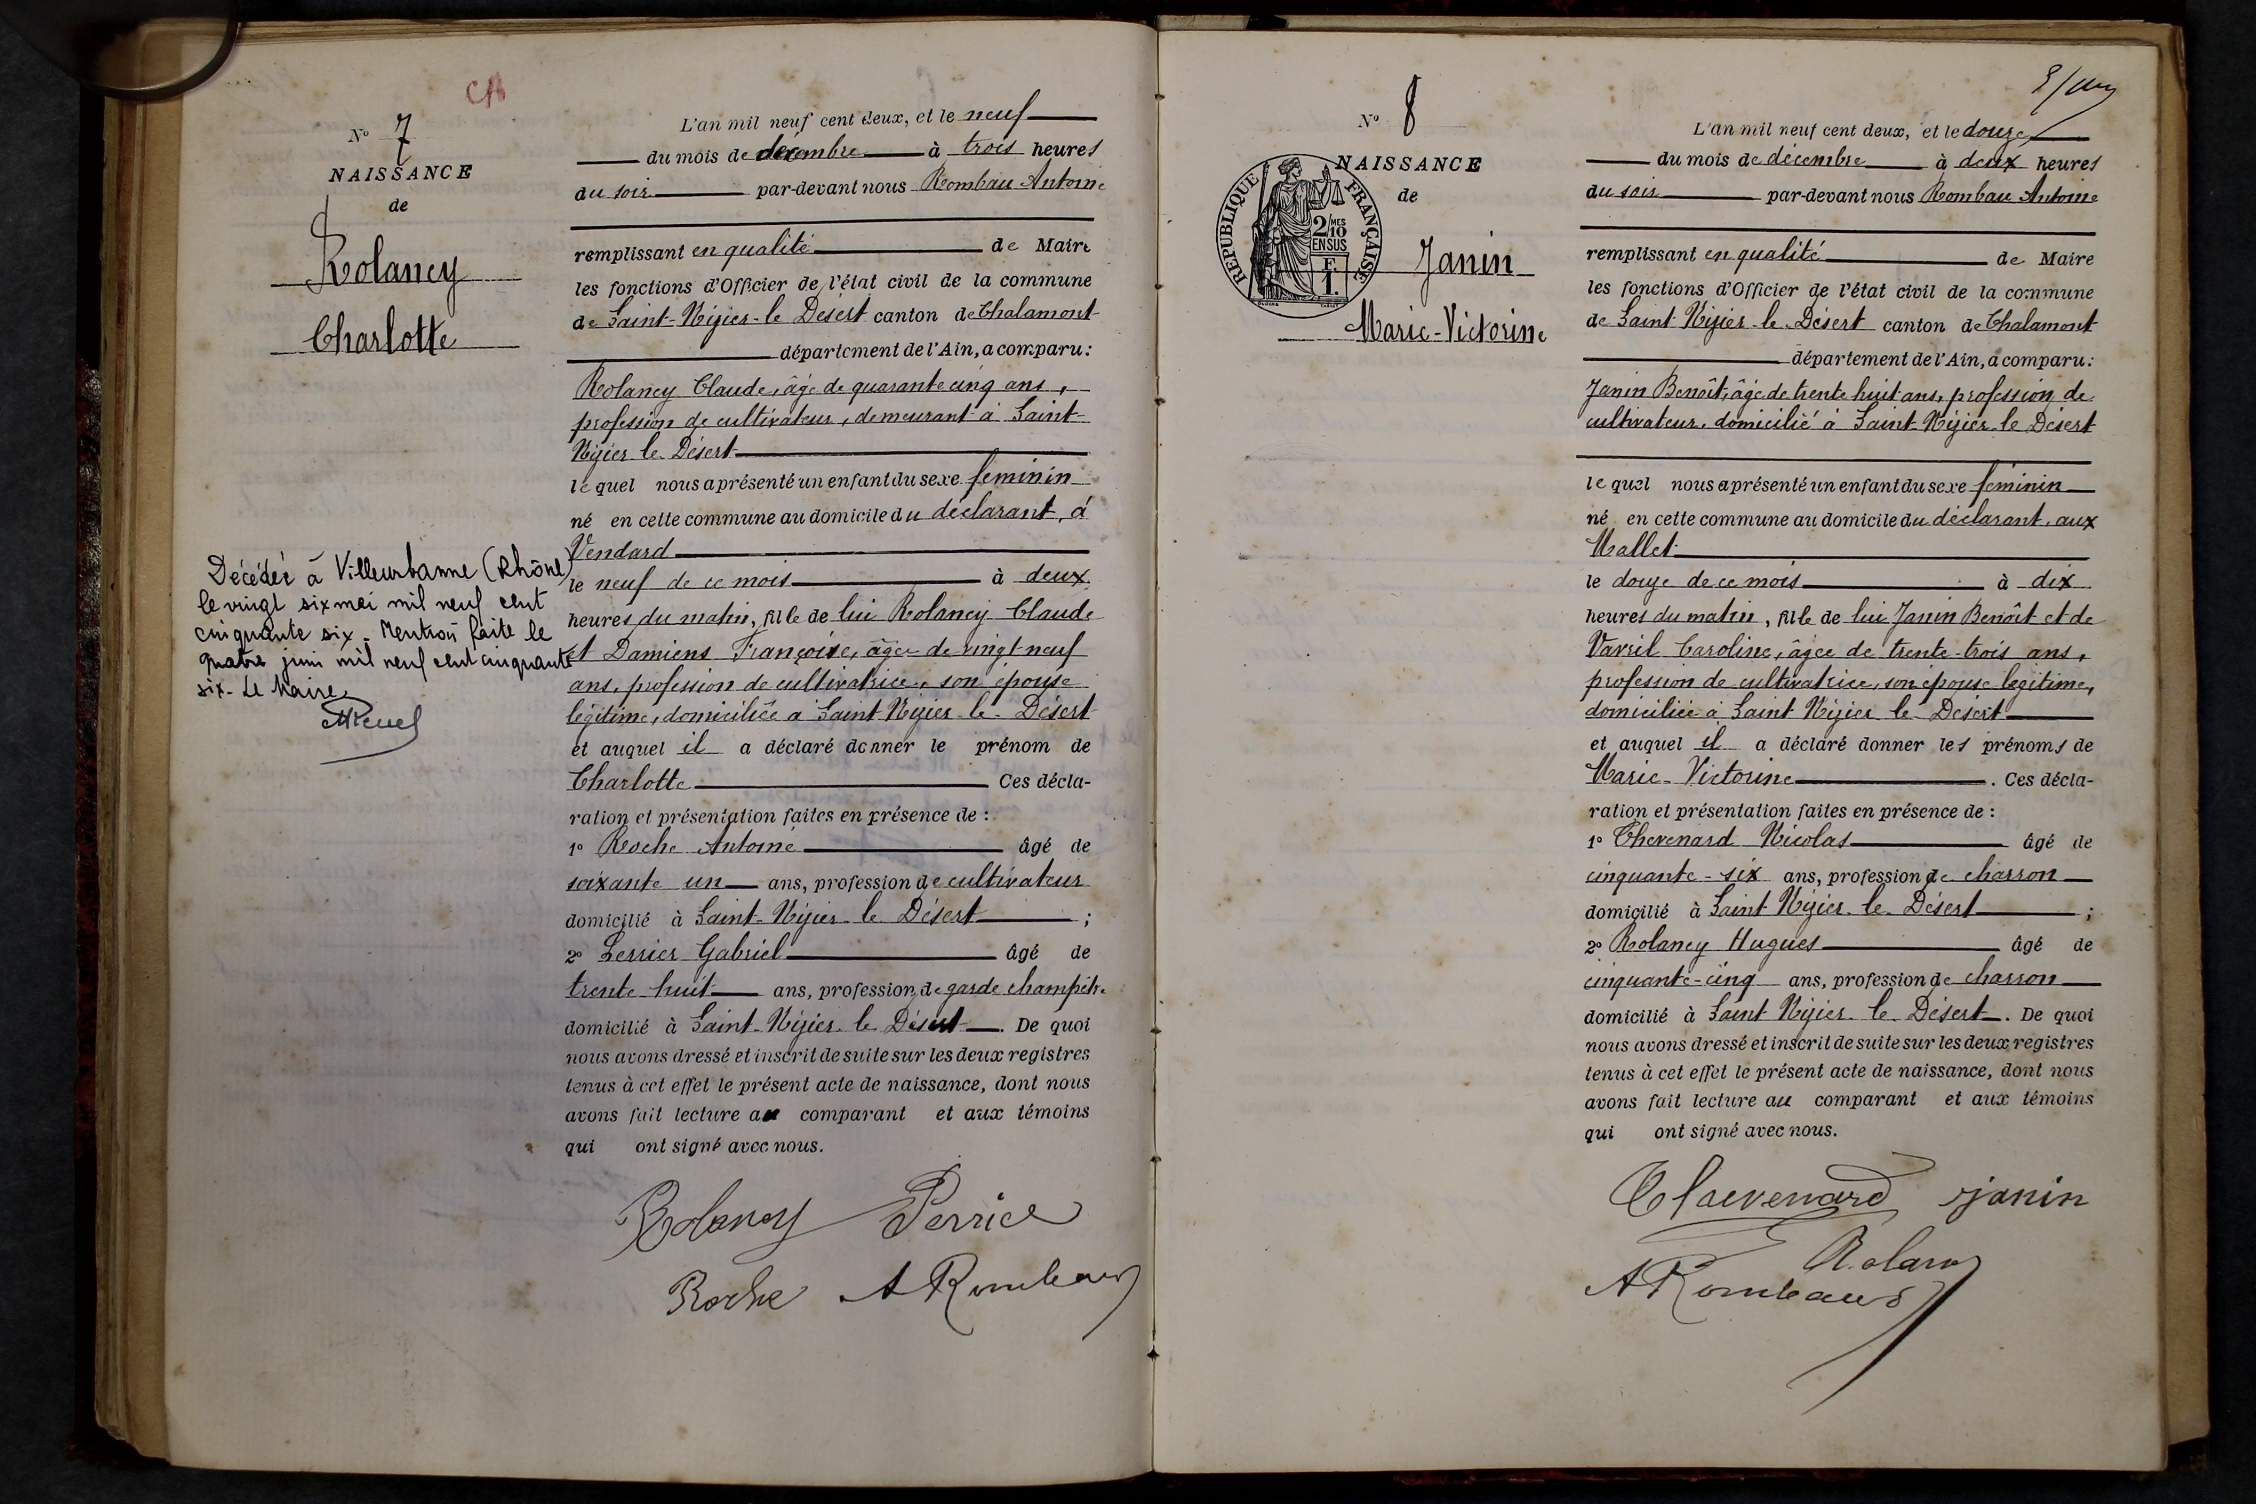 CA
N° 7
NAISSANCE
de
Rolancy
Charlotte
Décédée à Villeurbanne (Rhône)
le vingt six mai mil neuf cent
cinquante six - Mention faite le
quatre juin mil neuf cent cinquante
six - Le Maire
L'an mil neuf cent deux, et le neuf
du mois de décembre à trois heures
du soir par-devant nous Rombau Antoine
remplissant en qualité de Maire
les fonctions d'Officier de l'état civil de la commune
de Saint-Nizier-le Désert canton de Chalamont
département de l'Ain, a comparu :
Rolancy Claude, âgé de quarante cinq ans,
profession de cultivateur, demeurant à Saint-
Nizier le Désert
le quel nous a présenté un enfant du sexe féminin
né en cette commune au domicile du déclarant, à
Vendard
le neuf de ce mois à deux
heures du matin, fille de lui Rolancy Claude
et Damiens Françoise, âgée de vingt neuf
ans, profession de cultivatrice, son épouse
légitime, domiciliée à Saint-Nizier-le-Désert
et auquel il a déclaré donner le prénom de
Charlotte Ces décla-
ration et présentation faites en présence de :
1° Roche Antoine âgé de
soixante un ans, profession de cultivateur
domicilié à Saint-Nizier-le Désert ;
2° Perrier Gabriel âgé de
trente huit ans, profession de garde champêtre
domicilié à Saint-Nizier-le Désert. De quoi
nous avons dressé et inscrit de suite sur les deux registres
tenus à cet effet le présent acte de naissance, dont nous
avons fait lecture au comparant et aux témoins
qui ont signé avec nous.
Rolancy Perrier
Roche A Rombau
N° 8
NAISSANCE
de
RÉPUBLIQUE FRANÇAISE
2/10 MES
EN SUS
F.
1.
Janin
Marie-Victorine
L'an mil neuf cent deux, et le douze
du mois de décembre à deux heures
du soir par-devant nous Rombau Antoine
remplissant en qualité de Maire
les fonctions d'Officier de l'état civil de la commune
de Saint Nizier-le-Désert canton de Chalamont
département de l'Ain, a comparu :
Janin Benoît, âgé de trente huit ans, profession de
cultivateur, domicilié à Saint-Nizier-le Désert
le quel nous a présenté un enfant du sexe féminin
né en cette commune au domicile du déclarant, aux
Mallet
le douze de ce mois à dix
heures du matin, fille de lui Janin Benoît et de
Vavril Caroline, âgée de trente-trois ans,
profession de cultivatrice, son épouse légitime,
domiciliée à Saint Nizier le-Désert
et auquel il a déclaré donner les prénoms de
Marie-Victorine. Ces décla-
ration et présentation faites en présence de :
1° Thevenard Nicolas âgé de
cinquante-six ans, profession de charron
domicilié à Saint Nizier-le-Désert ;
2° Rolancy Hugues âgé de
cinquante-cinq ans, profession de charron
domicilié à Saint Nizier-le-Désert. De quoi
nous avons dressé et inscrit de suite sur les deux registres
tenus à cet effet le présent acte de naissance, dont nous
avons fait lecture au comparant et aux témoins
qui ont signé avec nous.
Thevenard janin
A Rombau